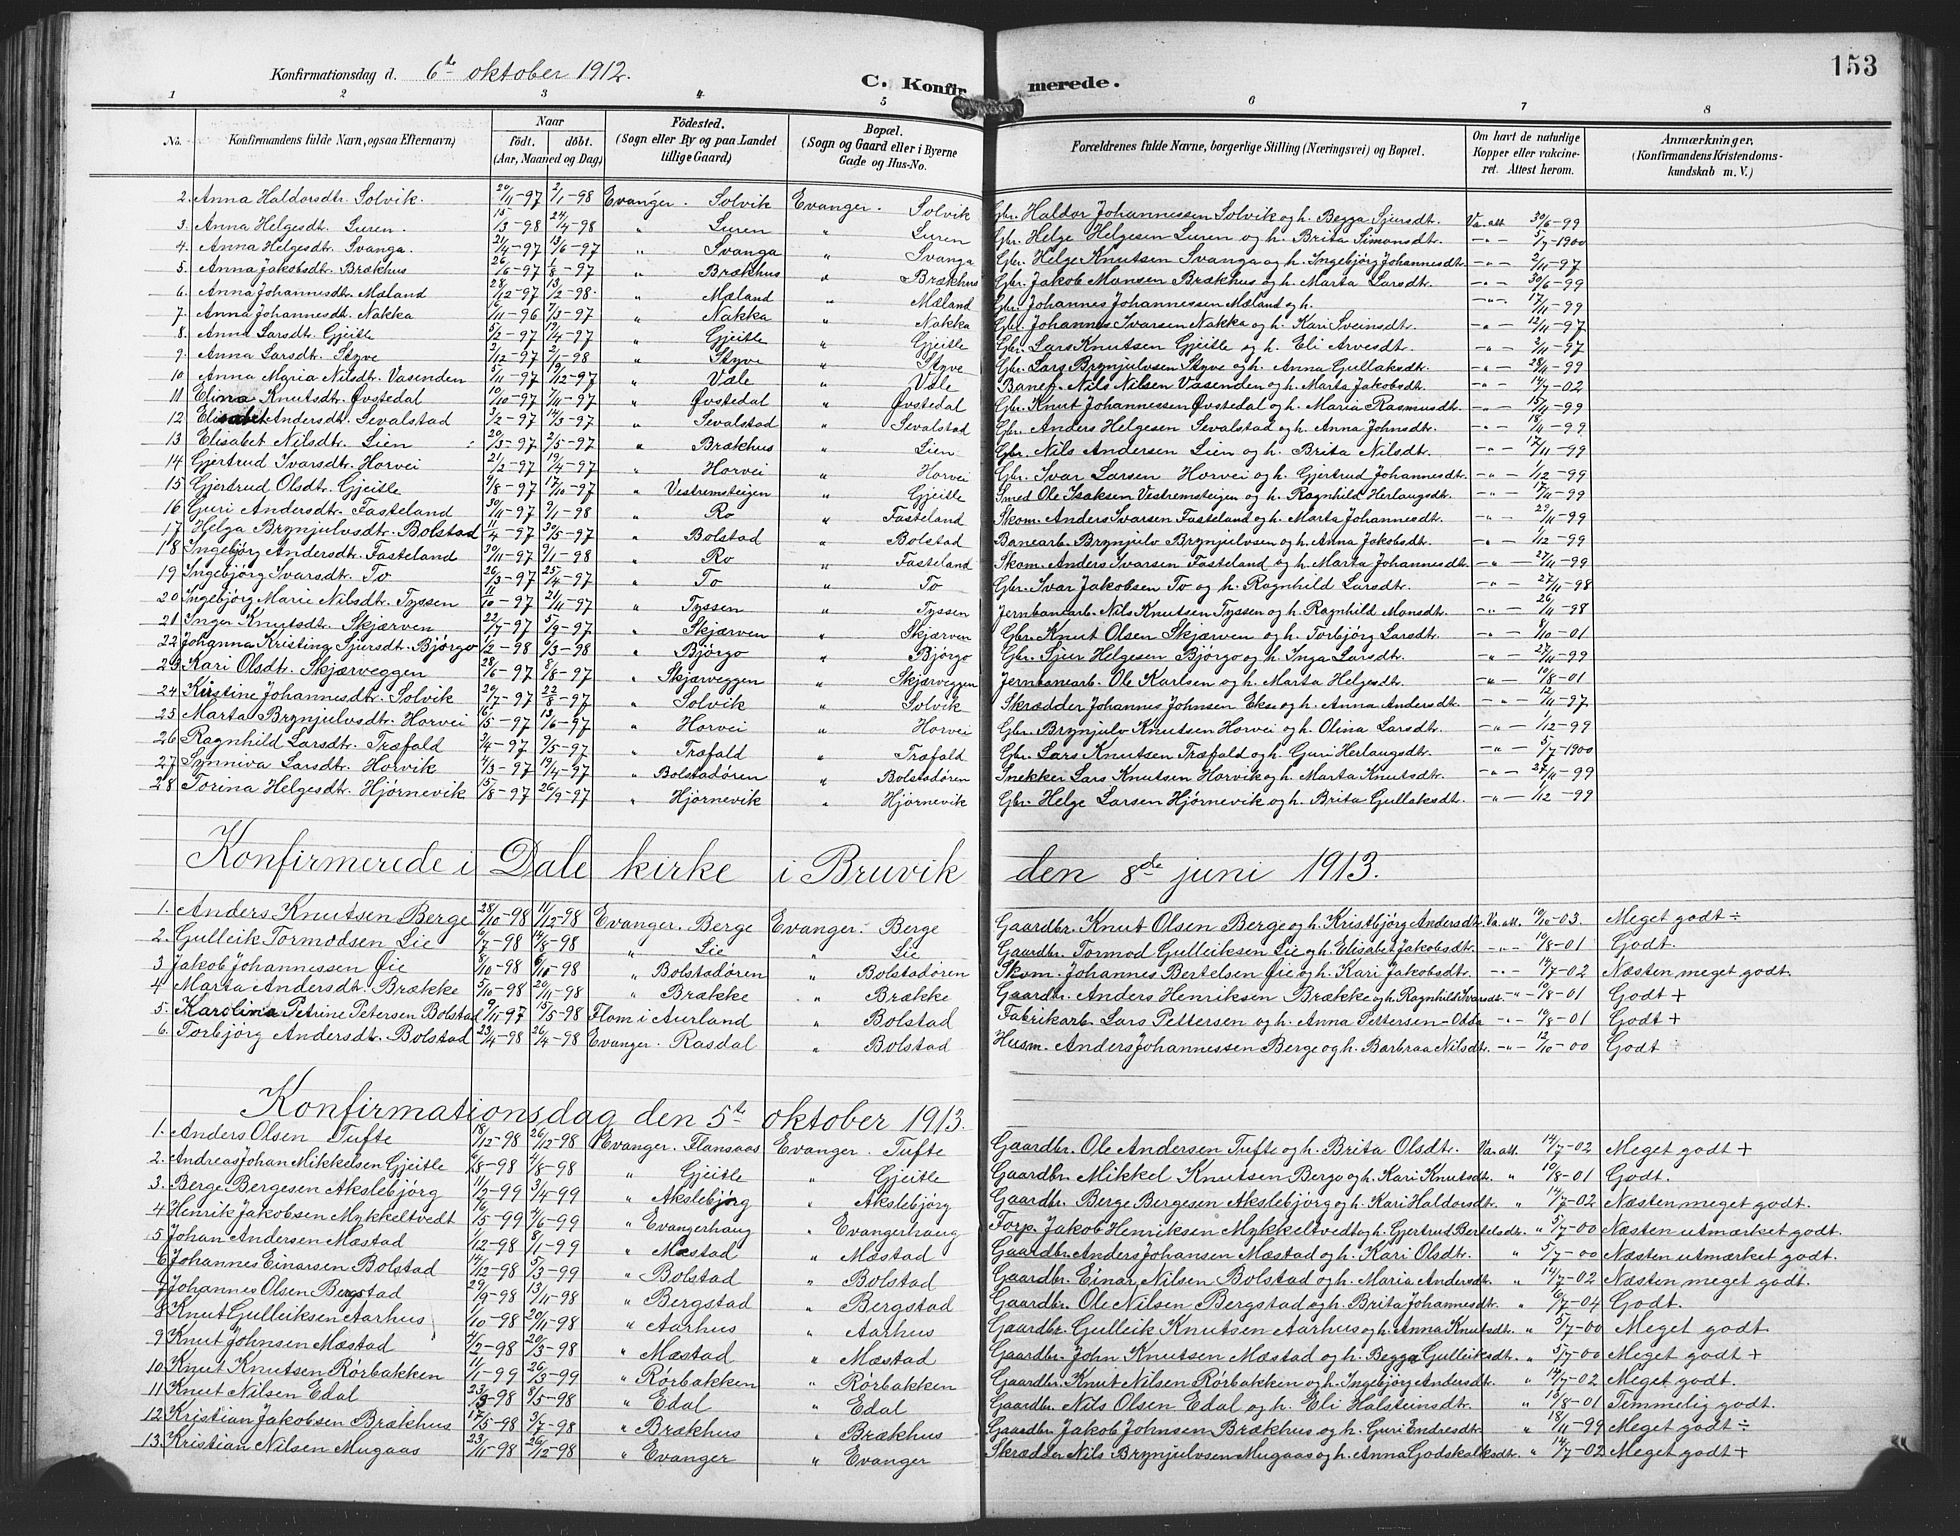 153
Konfirmationsdag d. 6te oktober 1912.
C. Konfirmerede.
1 2 3 4 5 6 7 8
No. Konfirmandens fulde Navn, ogsaa Efternavn) Naar födt. döbt. (Aar, Maaned og Dag) Födested. (Sogn eller By og paa Landet tillige Gaard) Bopæl. (Sogn og Gaard eller i Byerne Gade og Hus-No. Forældrenes fulde Navne, borgerlige Stilling (Næringsvei) og Bopæl. Om havt de naturlige Kopper eller vakcineret. Attest herom. Anmærkninger, (Konfirmandens Kristendomskundskab m. V.)
2. Anna Haldorsdtr. Solvik. 20/11-97 2/1-98 Evanger. Solvik Evanger. Solvik Gbr. Haldor Johannessen Solvik og h. Begga Sjursdt. Va. att. 30/6-99
3. Anna Helgesdt. Luren. 15/3-98 24/4-98 " Luren " Luren Gbr. Helge Helgesen Luren og h. Brita Simonsdt. -"- 5/7-1900
4. Anna Helgesdt. Svanga. 21/4-97 13/6-97 " Svanga " Svanga Gbr. Helge Knutsen Svanga og h. Ingebjørg Johannesdt. -"- 2/11-97
5. Anna Jakobsdt. Brækhus 26/6-97 1/8-97 " Brækhus " Brækhus Gbr. Jakob Monsen Brækhus og h. Marta Larsdt. -"- 30/6-99
6. Anna Johannesdt. Mæland 28/12-97 13/2-98 " Mæland " Mæland Gbr. Johannes Johannessen Mæland og h. -"- 17/11-99
7. Anna Johannesdt. Nakka 6/11-96 7/3-97 " Nakka " Nakka Gbr. Johannes Ivarsen Nakka og h. Kari Sveinsdt. -"- 12/11-97
8. Anna Larsdt. Gjeitle 5/2-97 19/4-97 " Gjeitle " Gjeitle Gbr. Lars Knutsen Gjeitle og h. Eli Arvesdt. -"- 2/11-97
9. Anna Larsdt. Styve 3/12-97 2/1-98 " Styve " Styve Gbr. Lars Brynjulvsen Styve og h. Anna Gullaksdt. -"- 28/4-99
10 Anna Maria Nilsdt. Vasenden 5/11-97 19/12-97 " Væle " Væle Banef. Nils Nilsen Vasenden og h. Marta Jakobsdt. -"- 14/7-02
11 Elina Knutsdt. Øvstedal 10/10-97 7/11-97 " Øvstedal " Øvstedal Gbr. Knut Johannessen Øvstedal og h. Maria Rasmusdt. -"- 15/11-99
12 Elisabet Andersdt. Sevalstad 3/2-97 14/3-97 " Sevalstad " Sevalstad Gbr. Anders Helgesen Sevalstad og h. Anna Johnsdt. -"- 18/11-99
13 Elisabet Nilsdt. Lien 20/3-97 2/5-97 " Brækhus " Lien Gbr. Nils Andersen Lien og h. Brita Nilsdt. -"- 17/11-99
14 Gjertrud Ivarsdt. Horvei 21/2-97 19/4-97 " Horvei " Horvei Gbr. Ivar Larsen Horvei og h. Gjertrud Johannesdt. -"- 1/12-99
15 Gjertrud Olsdt. Gjeitle 9/8-97 17/10-97 " Vestremsteigen " Gjeitle Smed Ole Isaksen Vestremsteigen og h. Ragnhild Herlaugsdt. -"- 17/11-99
16 Guri Andersdt. Fasteland 30/11-97 9/1-98 " Ro " Fasteland Skom. Anders Ivarsen Fasteland og h. Marta Johannesdt. -"- 29/11-99
17 Helga Brynjulvsdt. Bolstad 11/4-97 30/5-97 " Bolstad " Bolstad Banearb. Brynjulv Brynjulvsen og h. Anna Jakobsdt. -"- 1/12-99
18 Ingebjørg Andersdt. Fasteland 30/11-97 9/1-98 " Ro " Fasteland Skom. Anders Ivarsen Fasteland og h. Marta Johannesdt. -"- 27/11-99
19 Ingebjørg Ivarsdt. To 26/3-97 25/4-97 " To " To Gbr. Ivar Jakobsen To og h. Ragnhild Larsdt. -"- 27/11-98
20 Ingebjørg Marie Nilsdt. Tyssen 11/10-97 21/11-97 " Tyssen " Tyssen Jernbanearb. Nils Knutsen Tyssen og h. Ragnhild Monsdt. -"- 26/11-98
21 Inger Knutsdt. Skjærven 22/7-97 5/9-97 " Skjærven " Skjærven Gbr. Knut Olsen Skjærven og h. Torbjørg Larsdt. -"- 8/10-01
22 Johanna Kristina Sjursdt. Bjørgo 1/2-98 6/3-98 " Bjørgo " Bjørgo Gbr. Sjur Helgesen Bjørgo og h. Inga Larsdt. -"- 27/11-99
23 Kari Olsdt. Skjærveggen 28/6-97 8/8-97 " Skjærveggen " Skjærveggen Jernbanearb. Ole Karlsen og h. Marta Helgesdt. -"- 10/8-01
24 Kristine Johannesdt. Solvik 20/7-97 22/8-97 " Solvik " Solvik Skrædder Johannes Johnsen Ekse og h. Anna Andersdt. -"- 12/11-97
25 Marta Brynjulvsdt. Horvei 6/5-97 13/6-97 " Horvei " Horvei Gbr. Brynjulv Knutsen Horvei og h. Olina Larsdt. -"- 1/12-99
26 Ragnhild Larsdt. Træfald 3/4-97 9/5-97 " Træfald " Træfald Gbr. Lars Knutsen Træfald og h. Guri Herlaugsdt. -"- 5/7-1900
27 Synneva Larsdt. Horvik 4/3-97 19/4-97 " Bolstadøren " Bolstadøren Snekker Lars Knutsen Horvik og h. Marta Knutsdt. -"- 27/11-99
28 Torina Helgesdt. Hjørnevik 15/8-97 26/9-97 " Hjørnevik " Hjørnevik Gbr. Helge Larsen Hjørnevik og h. Brita Gullaksdt. -"- 1/12-99
Konfirmerede i Dale kirke i Bruvik den 8de juni 1913.
1. Anders Knutsen Berge 28/10-98 11/12-98 Evanger. Berge Evanger. Berge Gaardbr. Knut Olsen Berge og h. Kristbjørg Andersdt. Va. att. 19/10-03. Meget godt ÷
2. Gulleik Tormodsen Lie 6/7-98 14/8-98 " Lie " Lie Gaardbr. Tormod Gulleiksen Lie og h. Elisabet Jakobsdt. -"- 10/8-01 Godt.
3 Jakob Johannessen Øie 8/10-98 6/10-98 " Bolstadøren " Bolstadøren Skom. Johannes Bertelsen Øie og h. Kari Jakobsdt. -"- 14/7-02 Næsten meget godt.
4 Marta Andersdt. Brække 5/10-98 20/11-98 " Brække " Brække Gaardbr. Anders Henriksen Brække og h. Ragnhild Ivarsdt. -"- 10/8-01 Godt +
5. Karolina Petrine Petersen Bolstad 9/11-97 15/5-98 Flom i Aurland " Bolstad Fabrikarb. Lars Pettersen og h. Anna Pettersen-Odda -"- 10/8-01 Godt +
6. Torbjørg Andersdt. Bolstad 23/4-98 26/4-98 Evanger. Rasdal " Bolstad Husm. Anders Johannessen Berge og h. Barbraa Nilsdt. -"- 12/10-00 Godt
Konfirmationsdag den 5te oktober 1913.
1. Anders Olsen Tufte 18/12-98 26/12-98 Evanger. Flansaas Evanger. Tufte Gaardbr. Ole Andersen Tufte og h. Brita Olsdt. Va. att. 14/7-02 Meget godt +
2. Andreas Johan Mikkelsen Gjeitle 6/8-98 4/8-98 " Gjeitle " Gjeitle Gaardbr. Mikkel Knutsen Bergo og h. Kari Knutsdt. " 10/8-01 Godt.
3. Berge Bergesen Akslebjörg 11/2-99 3/4-99 " Akslebjørg " Akslebjørg Gaardbr. Berge Bergesen Akslebjørg og h. Kari Haldorsdt. " 14/7-02 Næsten meget godt.
4 Henrik Jakobsen Mykkeltvedt 16/5-99 4/6-99 " Evangerhaug " Evangerhaug Forp. Jakob Henriksen Mykkeltvedt og h. Gjertrud Bertelsdt. " 5/7-00 Næsten utmærket godt.
5 Johan Andersen Mæstad /12-98 8/1-99 " Mæstad " Mæstad Gaardbr. Anders Johansen Mæstad og h. Kari Olsdt. " 5/7-00 Næsten utmærket godt.
6 Johannes Einarsen Bolstad 14/12-98 5/3-99 " Bolstad " Bolstad Gaardbr. Einar Nilsen Bolstad og h. Maria Andersdt. " 14/7-02 Næsten meget godt.
7 Johannes Olsen Bergstad 29/9-98 13/11-98 " Bergstad " Bergstad Gaardbr. Ole Nilsen Bergstad og h. Brita Johannesdt. " 16/7-04 Godt.
8 Knut Gulleiksen Aarhus 1/10-98 20/11-98 " Aarhus " Aarhus Gaardbr. Gulleik Knutsen Aarhus og h. Anna Knutsdt. " 5/7-00 Meget godt
9 Knut Johnsen Mæstad 4/2-98 20/3-98 " Mæstad " Mæstad Gaardbr. John Knutsen Mæstad og h. Begga Gulleiksdt. " 5/7-00 Meget godt +
10 Knut Knutsen Rörbakken 11/1-99 26/3-99 " Rörbakken " Rörbakken Gaardbr. Knut Nilsen Rörbakken og h. Ingebjørg Andersdt. " 14/7-02 Meget godt.
11 Knut Nilsen Edal 23/3-98 8/5-98 " Edal " Edal Gaardbr. Nils Olsen Edal og h. Eli Halsteinsdt. " 10/8-01 Temmelig godt.
12 Kristian Jakobsen Brækhus 17/5-98 3/7-98 " Brækhus " Brækhus Gaardbr. Jakob Johnsen Brækhus og h. Guri Endresdt. " 18/11-99 Meget godt ÷
13 Kristian Nilsen Mugaas 23/11-98 26/12-98 " Evanger " Evanger Skrædder Nils Brynjulvsen Mugaas og h. Anna Godskalksdt. " 14/7-02 Meget godt +